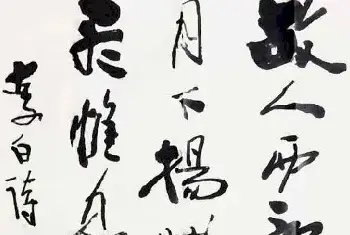 故人西
月下揚
尽惟見
李白詩